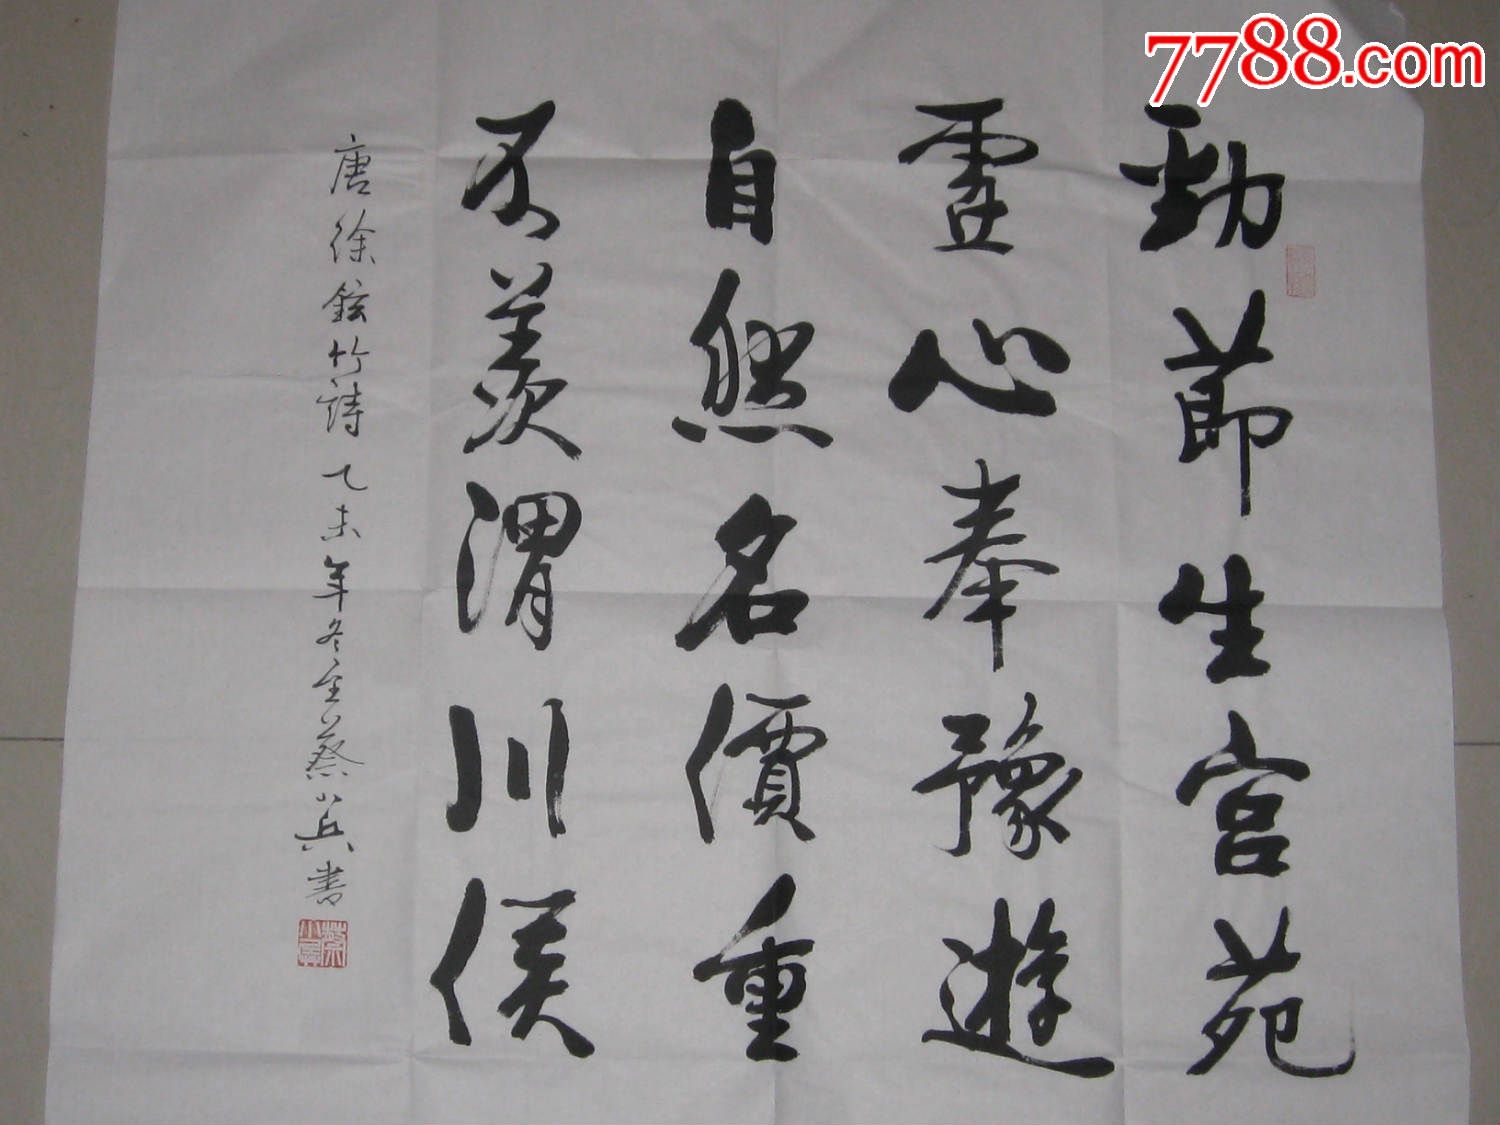 7788.com
勁節生宮苑
虛心奉豫遊
自然名價重
不羨渭川侯
唐徐鉉竹詩乙未年冬至蔡小兵書
蔡小兵